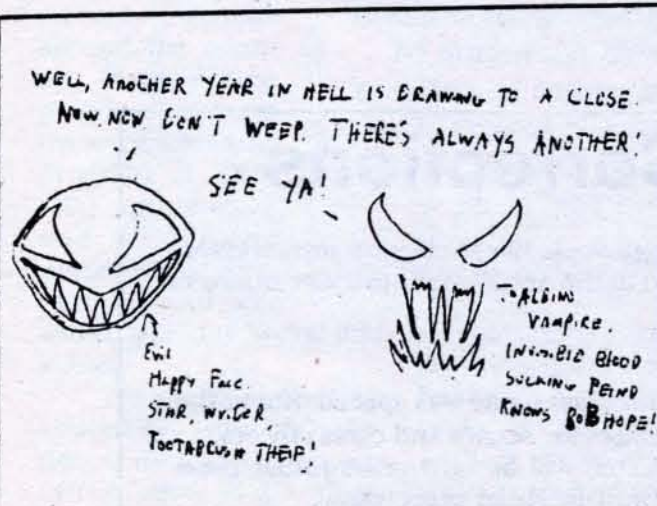 WELL, ANOTHER YEAR IN HELL IS DRAWING TO A CLOSE.
NOW, NOW DON'T WEEP. THERE'S ALWAYS ANOTHER!
SEE YA!
Evil
Happy Face.
STAR, WRITER,
THEIF!
ALBINO
VAMPIRE.
INVISIBLE BLOOD
SUCKING FEIND
KNOWS BOB HOPE!